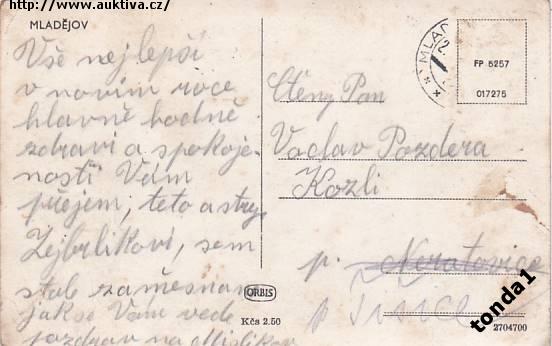 http://www.auktiva.cz/
MLADĚJOV
Vše nejlepší
v novém roce
hlavně hodně
zdraví a spokoje-
nosti Vám
přejem, teto a strý
Zejbrlikovi, sem
stale zaměsnan
jak se Vám vede
pozdrav na
ORBIS
Kčs 2.50
MLAD
FP 5257
017275
Ctěny Pan
Vaclav Pozdera
Kozli
p. Neratovice
p Tišice
2704700
tonda1